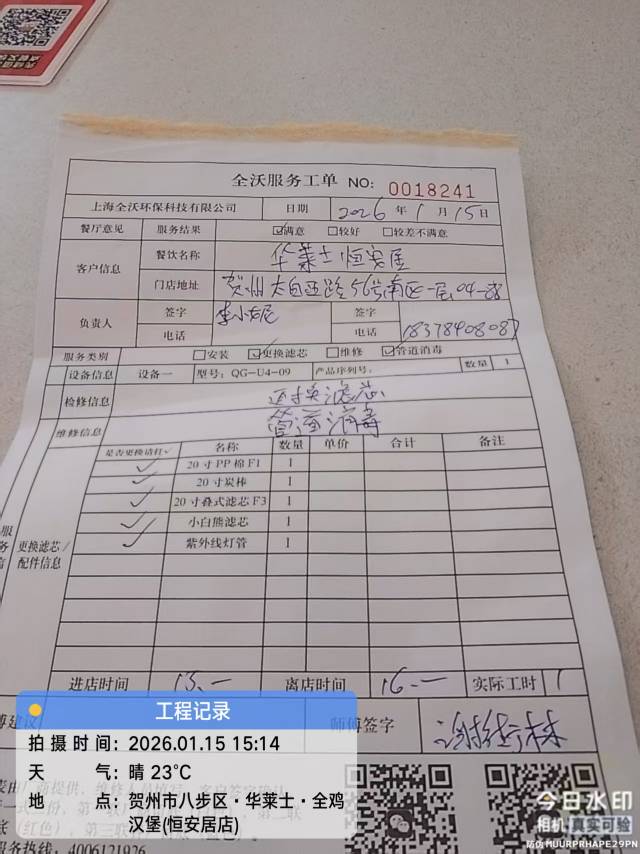 全沃服务工单 NO: 0018241
上海全沃环保科技有限公司 日期 2026 年 1 月 15 日
餐厅意见 服务结果 ☑满意 □较好 □较差不满意
客户信息 餐饮名称 华莱士恒安居
门店地址 贺州太白西路56号南区一层04-
负责人 签字 签字
电话 电话 18378408087
服务类别 □安装 ☑更换滤芯 □维修 ☑管道消毒
设备信息 设备一 型号: QG-U4-09 产品序列号: 数量 1
检修信息 更换滤芯
维修信息 管道消毒
是否更换请打✓ 名称 数量 单价 合计 备注
✓ 20寸PP棉F1 1
✓ 20寸炭棒 1
✓ 20寸叠式滤芯F3 1
✓ 小白熊滤芯 1
✓ 紫外线灯管 1
更换滤芯/
配件信息
进店时间 15.— 离店时间 16.— 实际工时 1
师傅签字
工程记录
拍摄时间: 2026.01.15 15:14
天 气: 晴 23℃
地 点: 贺州市八步区·华莱士·全鸡
汉堡(恒安居店)
服务热线: 4006121926
今日水印
相机 真实可验
防伪 MUURPRHAPE29PN